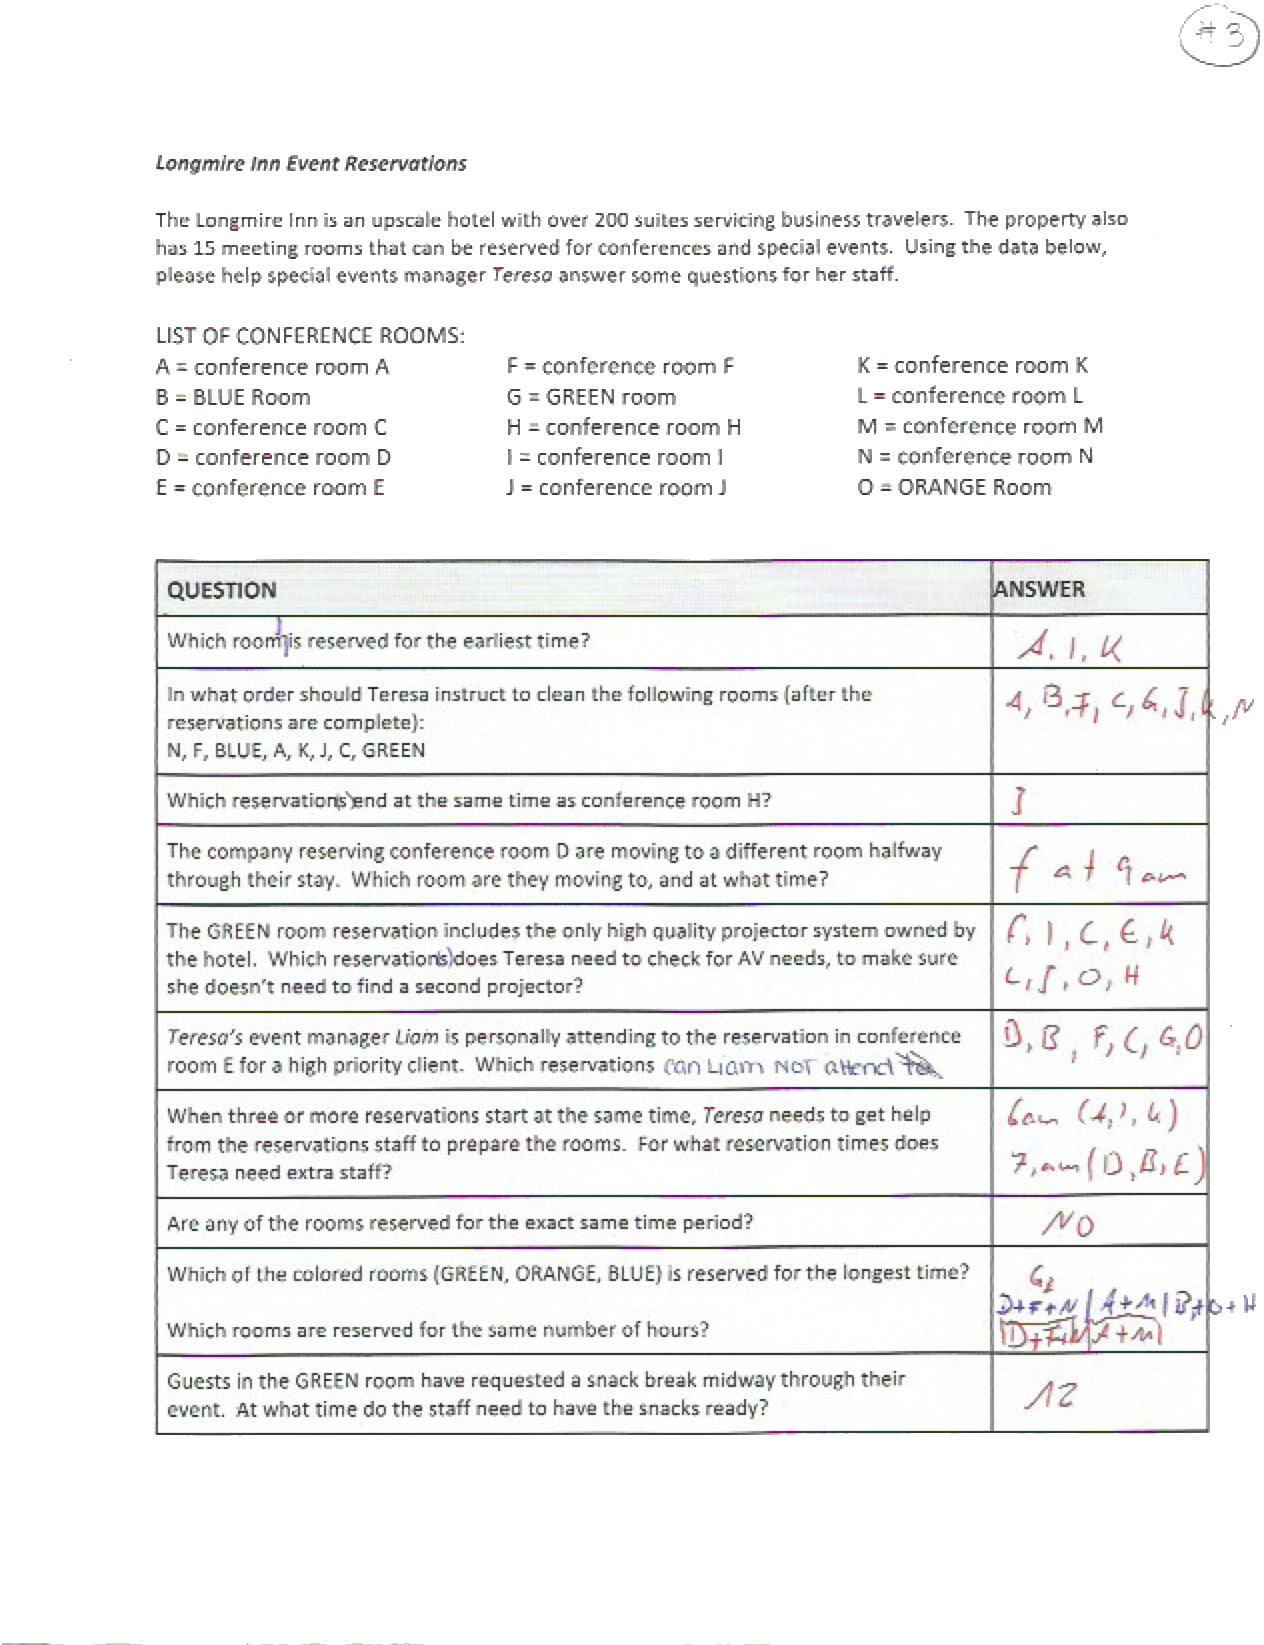 # 3
Longmire Inn Event Reservations
The Longmire Inn is an upscale hotel with over 200 suites servicing business travelers. The property also
has 15 meeting rooms that can be reserved for conferences and special events. Using the data below,
please help special events manager Teresa answer some questions for her staff.
LIST OF CONFERENCE ROOMS:
A = conference room A F = conference room F K = conference room K
B = BLUE Room G = GREEN room L = conference room L
C = conference room C H = conference room H M = conference room M
D = conference room D I = conference room I N = conference room N
E = conference room E J = conference room J O = ORANGE Room
QUESTION ANSWER
Which room is reserved for the earliest time? A, I, K
In what order should Teresa instruct to clean the following rooms (after the
reservations are complete):
N, F, BLUE, A, K, J, C, GREEN
A, B, F, C, G, J, K, N
Which reservation(s) end at the same time as conference room H? J
The company reserving conference room D are moving to a different room halfway
through their stay. Which room are they moving to, and at what time?
f at 9am
The GREEN room reservation includes the only high quality projector system owned by
the hotel. Which reservation(s) does Teresa need to check for AV needs, to make sure
she doesn't need to find a second projector?
F, I, C, E, K
L, J, O, H
Teresa's event manager Liam is personally attending to the reservation in conference
room E for a high priority client. Which reservations can Liam NOT attend
D, B, F, C, G, O
When three or more reservations start at the same time, Teresa needs to get help
from the reservations staff to prepare the rooms. For what reservation times does
Teresa need extra staff?
6am (A, I, K)
7,am (D, B, E)
Are any of the rooms reserved for the exact same time period? NO
Which of the colored rooms (GREEN, ORANGE, BLUE) is reserved for the longest time? G
D+F+N | A+M | B+O+H
Which rooms are reserved for the same number of hours? A+M
Guests in the GREEN room have requested a snack break midway through their
event. At what time do the staff need to have the snacks ready?
12